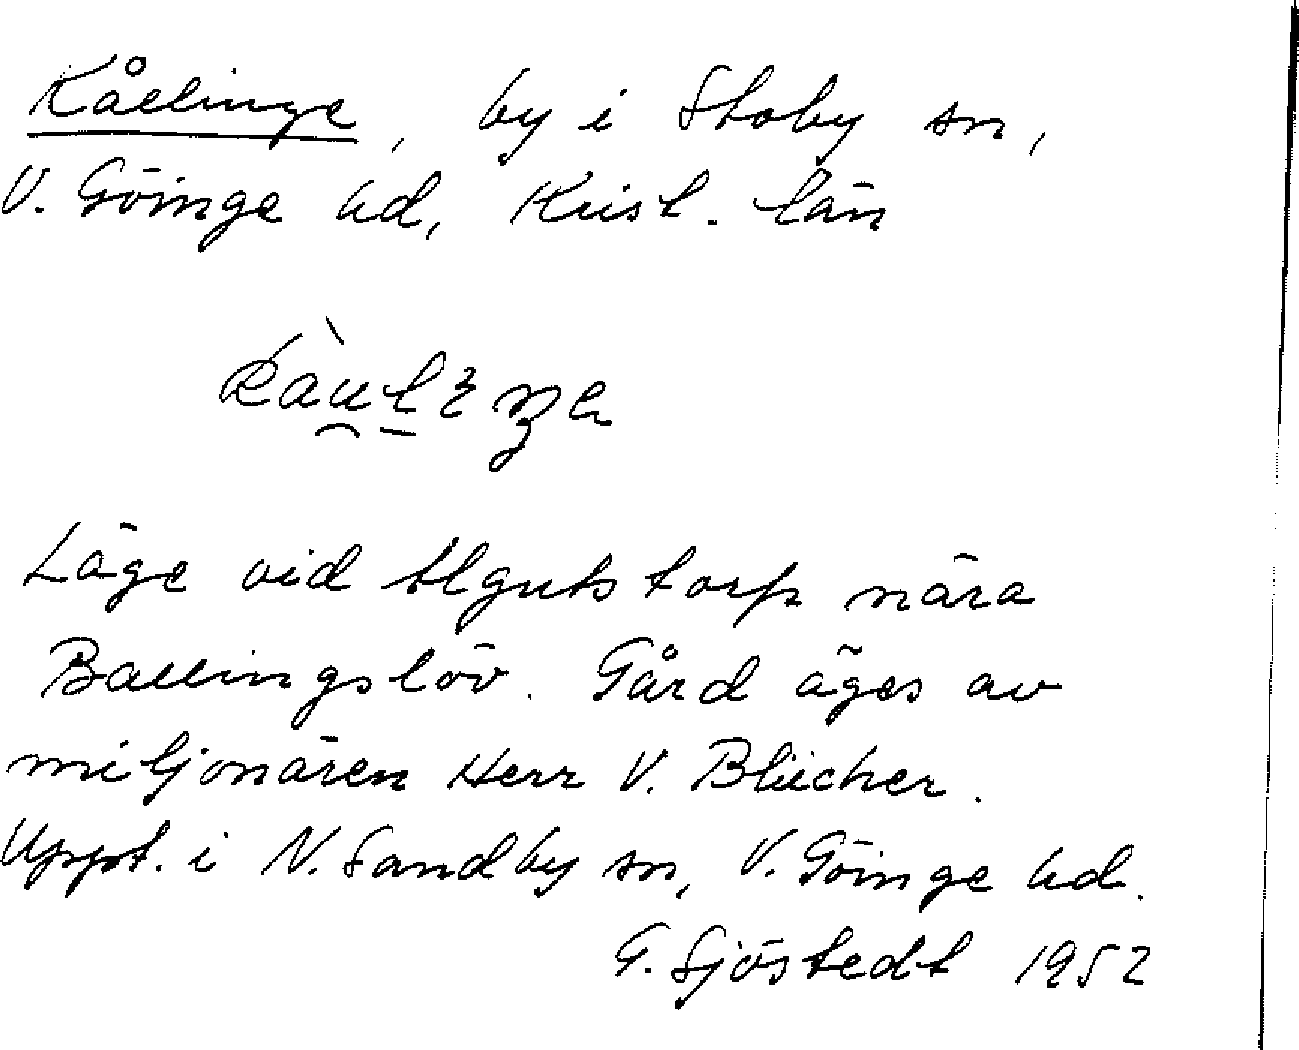 Kållinge, by i Stoby sn,
V. Göinge hd, Krist. län
Läge vid Algutstorp nära
Ballingslöv. Gård äges av
miljonären Herr V. Blücher.
Uppt. i N. Sandby sn, V. Göinge hd.
G. Sjöstedt 1952